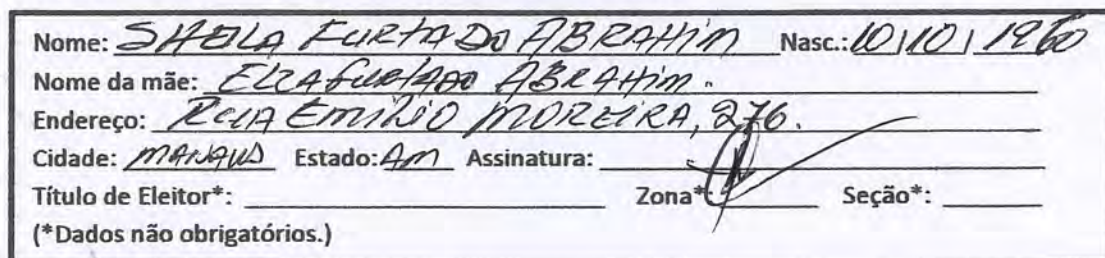 Nome: SHEILA FURTADO ABRAHIM Nasc.: 10/10/1960
Nome da mãe: ELZA FURTADO ABRAHIM.
Endereço: RUA EMÍLIO MOREIRA, 276.
Cidade: MANAUS Estado: AM Assinatura:
Título de Eleitor*: Zona*: Seção*:
(*Dados não obrigatórios.)